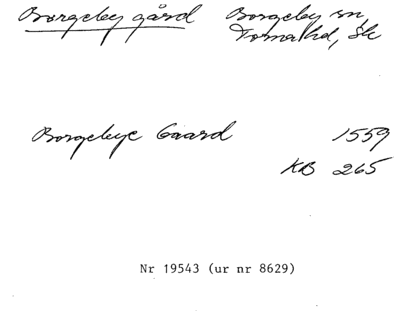 Borgeby gård Borgeby sn,
Torna hd, Sk
Borgebye Gaard 1559
KB 265
Nr 19543 (ur nr 8629)